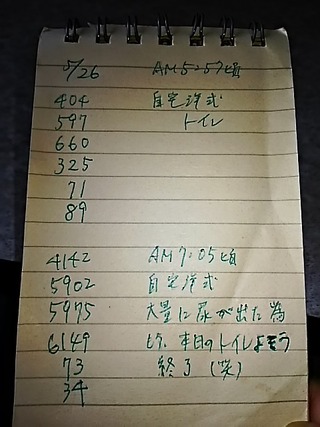 5/26 AM 5:57頃
404 自宅洋式
597 トイレ
660
325
71
89
4142 AM 7:05頃
5902 自宅洋式
5975 大量に尿が出た為
6149 もう、本日のトイレよそう
73 終了 (笑)
34